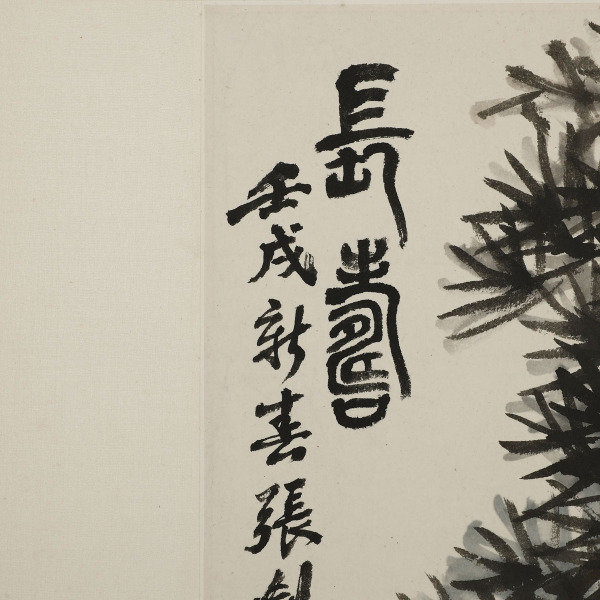 長壽
壬戌新春張